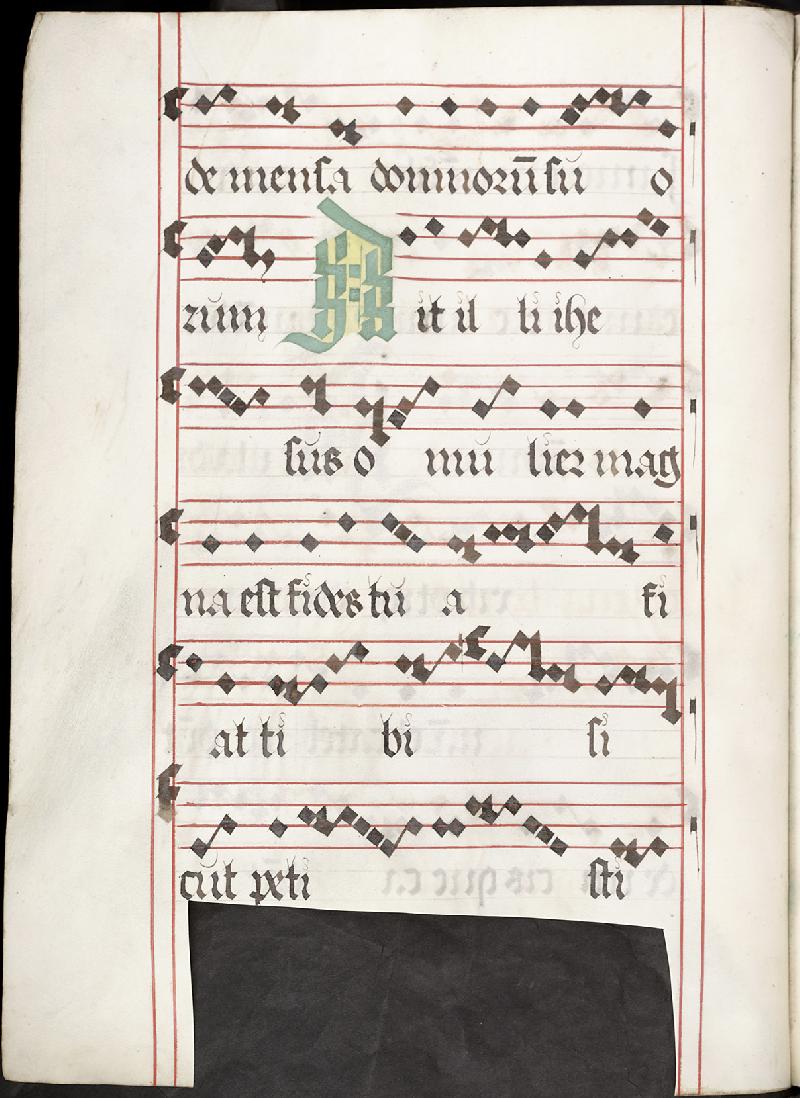 de mensa dominorũ su o
rum Ait il li ihe
sus o mu lier mag
na est fides tu a fi
at ti bi si
cut peti sti